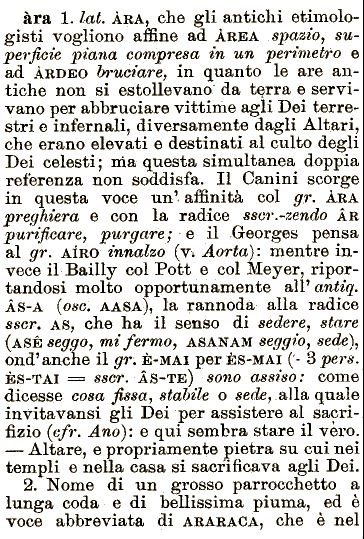 àra 1. lat. ÀRA, che gli antichi etimolo-
gisti vogliono affine ad ÀREA spazio, su-
perficie piana compresa in un perimetro e
ad ÀRDEO bruciare, in quanto le are an-
tiche non si estollevano da terra e servi-
vano per abbruciare vittime agli Dei terre-
stri e infernali, diversamente dagli Altari,
che erano elevati e destinati al culto degli
Dei celesti; ma questa simultanea doppia
referenza non soddisfa. Il Canini scorge
in questa voce un' affinità col gr. ÀRA
preghiera e con la radice sscr.-zendo ÂR
purificare, purgare; e il Georges pensa
al gr. AÍRO innalzo (v. Aorta): mentre in-
vece il Bailly col Pott e col Meyer, ripor-
tandosi molto opportunamente all' antiq.
ÂS-A (osc. AASA), la rannoda alla radice
sscr. AS, che ha il senso di sedere, stare
(ASÊ seggo, mi fermo, ASANAM seggio, sede),
ond'anche il gr. È-MAI per ÈS-MAI (- 3 pers.
ÈS-TAI = sscr. ÂS-TE) sono assiso: come
dicesse cosa fissa, stabile o sede, alla quale
invitavansi gli Dei per assistere al sacri-
fizio (cfr. Ano): e qui sembra stare il vero.
— Altare, e propriamente pietra su cui nei
templi e nella casa si sacrificava agli Dei.
2. Nome di un grosso parrocchetto a
lunga coda e di bellissima piuma, ed è
voce abbreviata di ARARACA, che è nel